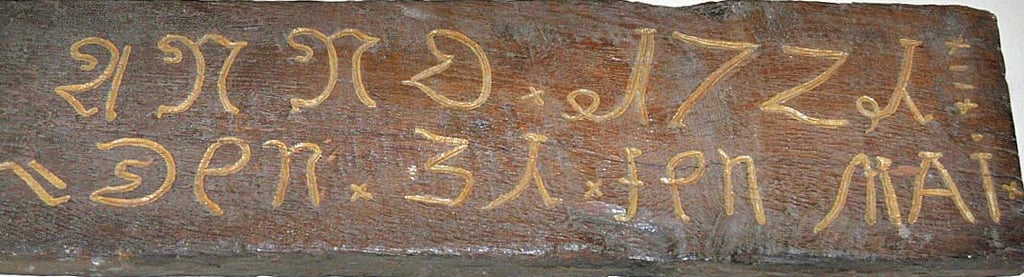 ANNO × 1721
DEN × 31 × ten MAI